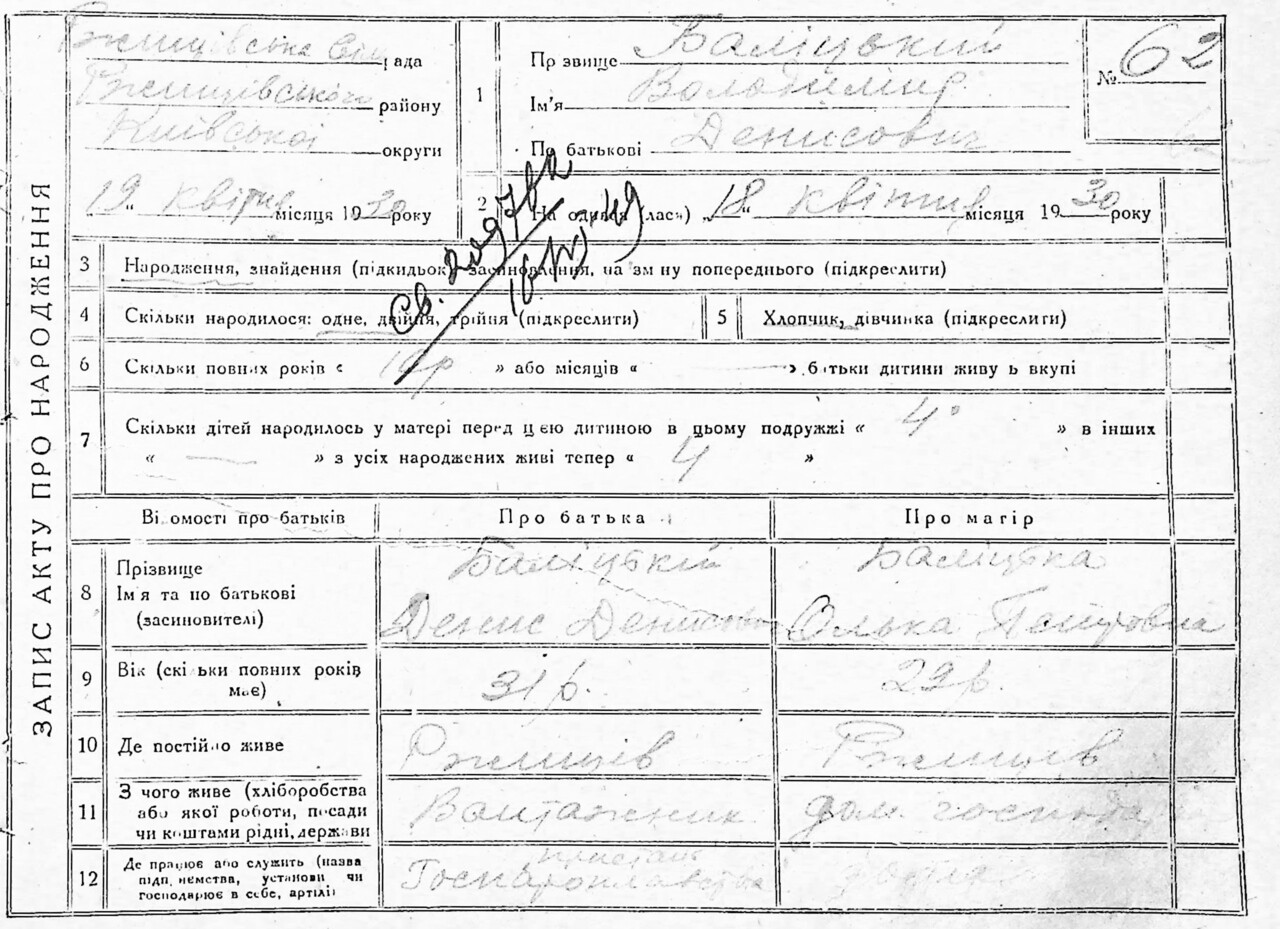 ЗАПИС АКТУ ПРО НАРОДЖЕННЯ
Ржищівська рада
Ржищівського району
Київської округи
19 " квітня місяця 1930 року
1 Прізвище Баліцький
Ім'я Володимір
По батькові Денисович
№ 62
2 На одився (лась) " 18 " квітня місяця 1930 року
3 Народження, знайдення (підкидьок) засиновлення, на зм ну попереднього (підкреслити)
4 Скільки народилося: одне, двійня, трійня (підкреслити)
5 Хлопчик, дівчинка (підкреслити)
6 Скільки повних років « 10 р » або місяців « — » батьки дитини живу ь вкупі
7 Скільки дітей народилось у матері перед цією дитиною в цьому подружжі « 4 » в інших
« — » з усіх народжених живі тепер « 4 »
Ві омості про батьків Про батька Про матір
8 Прізвище
Ім'я та по батькові
(засиновителі)
Баліцький
Денис Денисович
Баліцька
Олька Петровна
9 Вік (скільки повних років
має)
31 р. 29 р.
10 Де постійно живе Ржищів Ржищів
11 З чого живе (хліборобства
або якої роботи, посади
чи коштами рідні, держави
Вантажник дом. господар
12 Де працює або служить (назва
підп иємства, установи чи
господарює в себе, артілі)
пристань
Госпароплавства
Св.